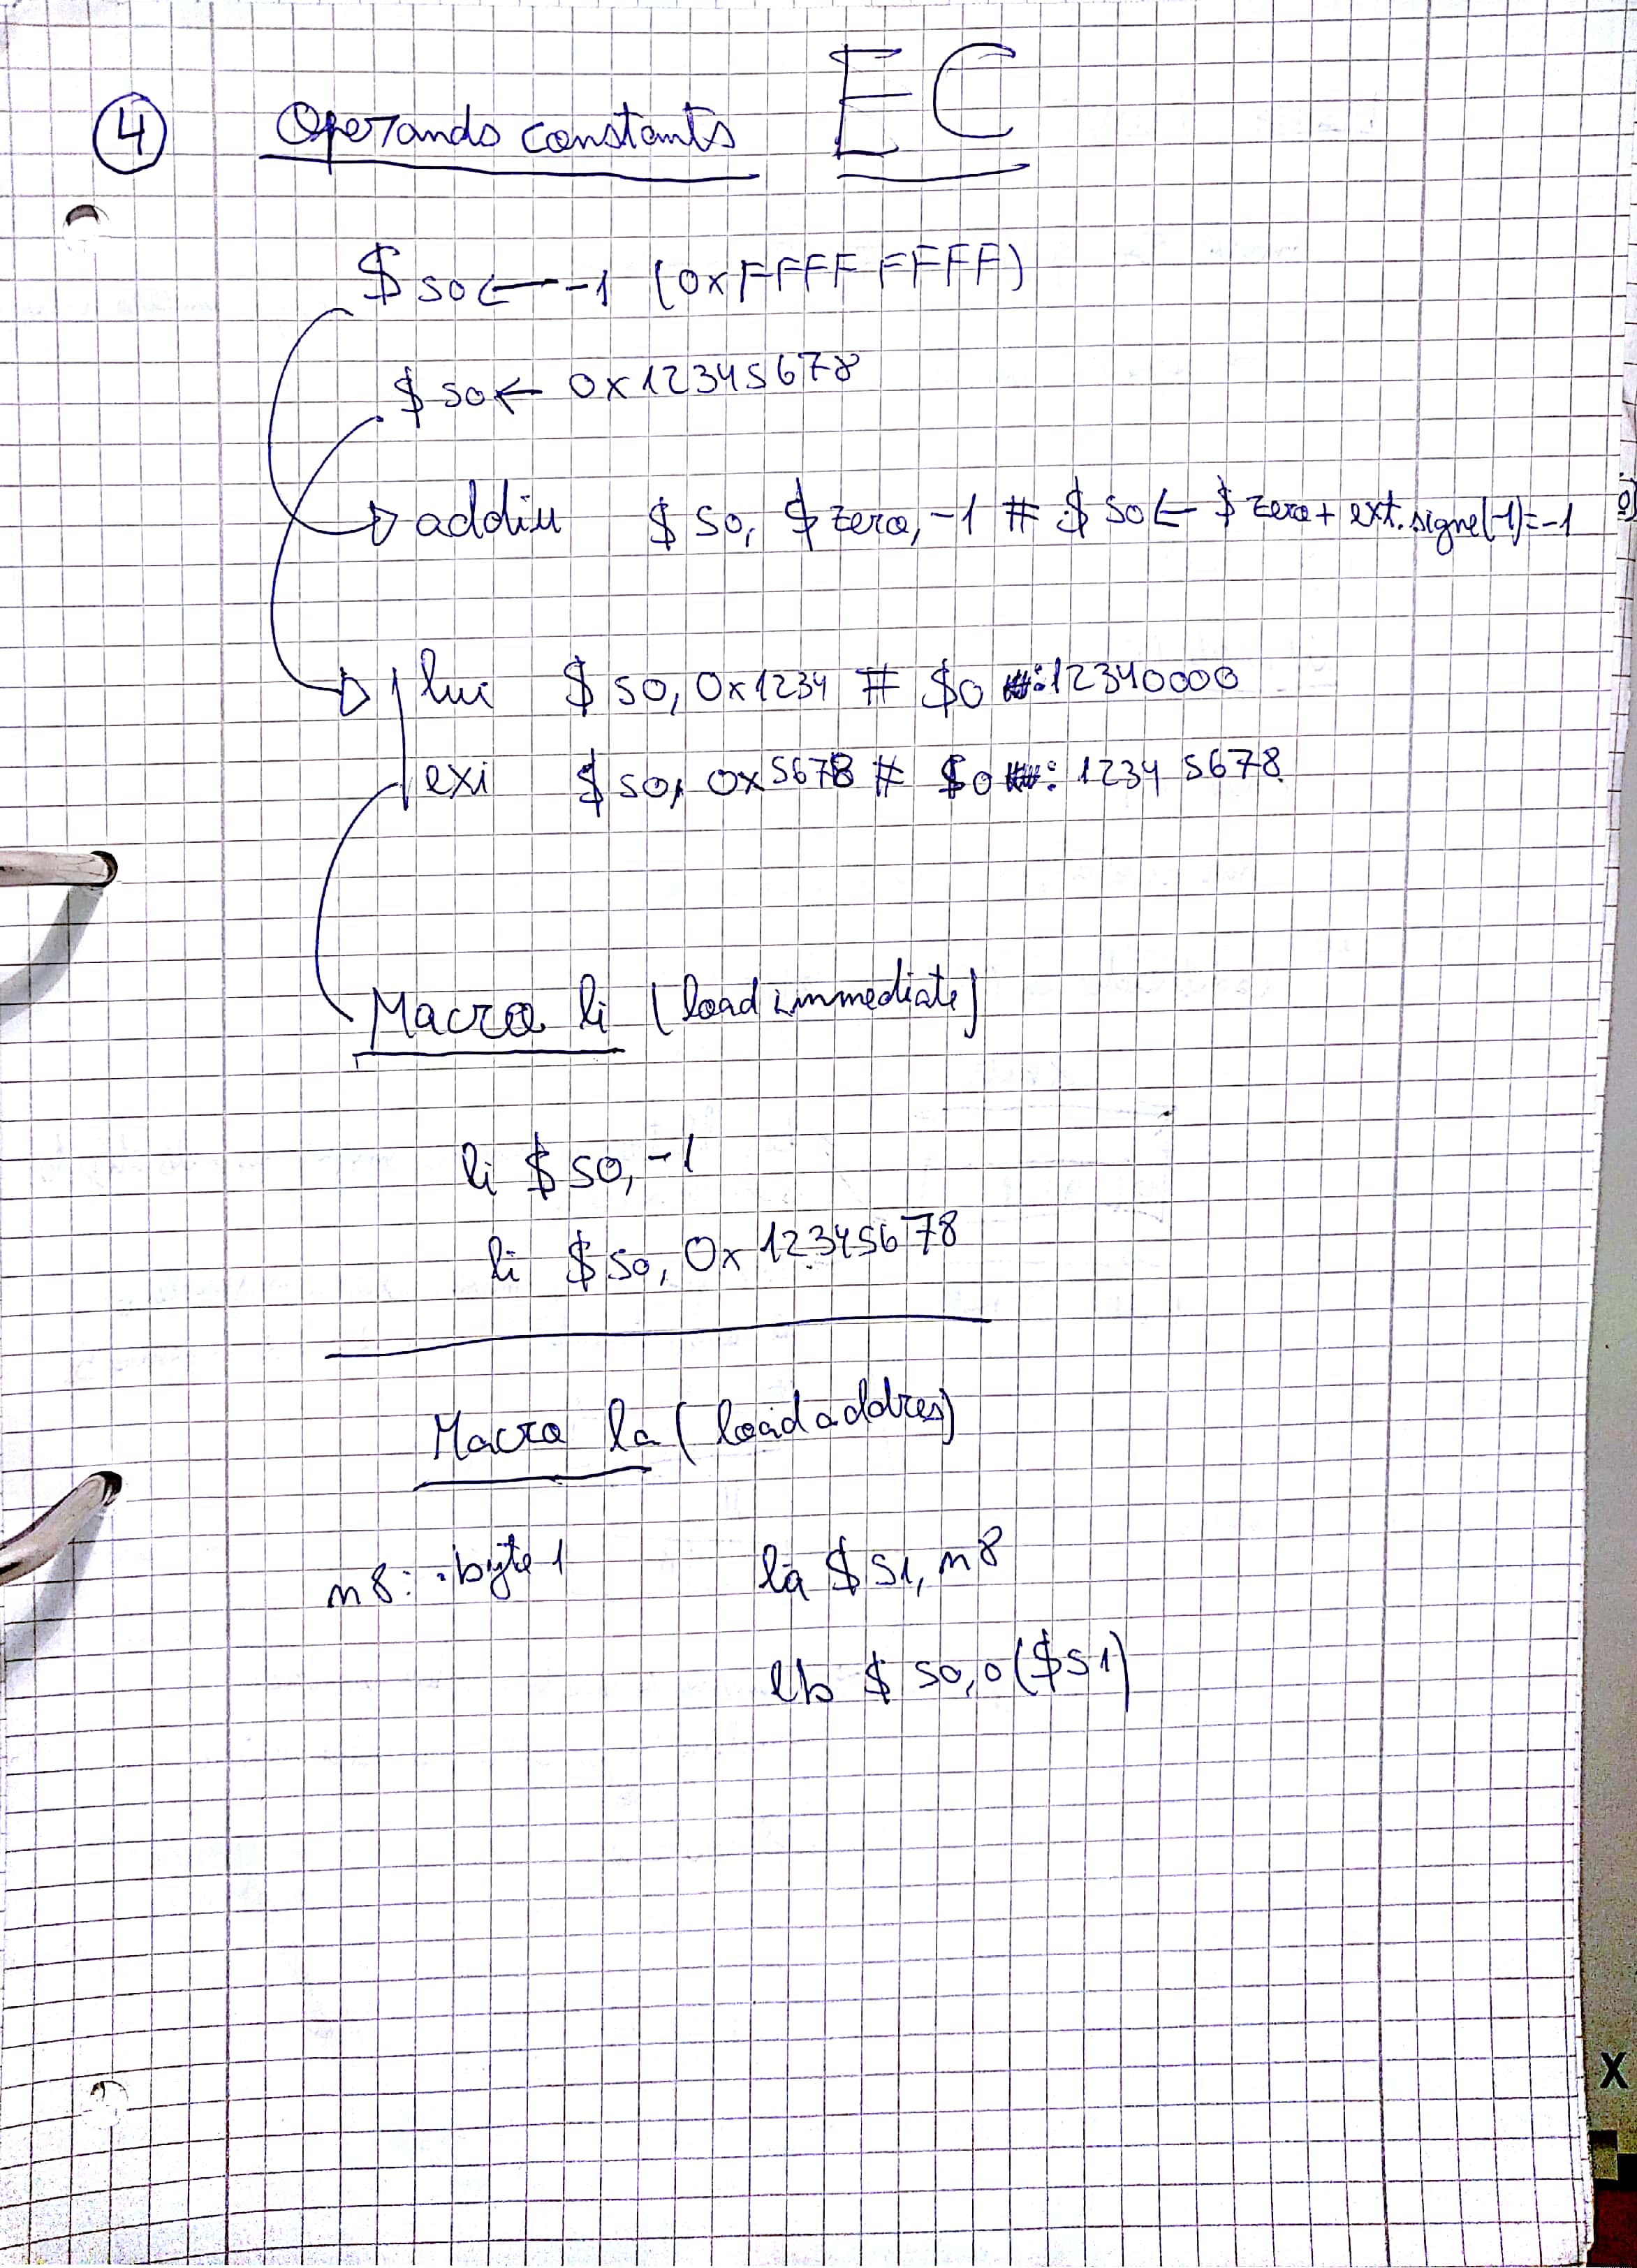 ④ Operands constants EC
$s0 ← -1 (0xFFFF FFFF)
$s0 ← 0x12345678
addiu $s0, $zero, -1 # $s0 ← $zero + ext.signe(-1)=-1
lui $s0, 0x1234 # $0 : 12340000
exi $s0, 0x5678 # $0 : 1234 5678
Macro li (load immediate)
li $s0, -1
li $s0, 0x12345678
Macro la (load addres)
n8: .byte 1 la $s1, n8
lb $s0, 0($s1)
X